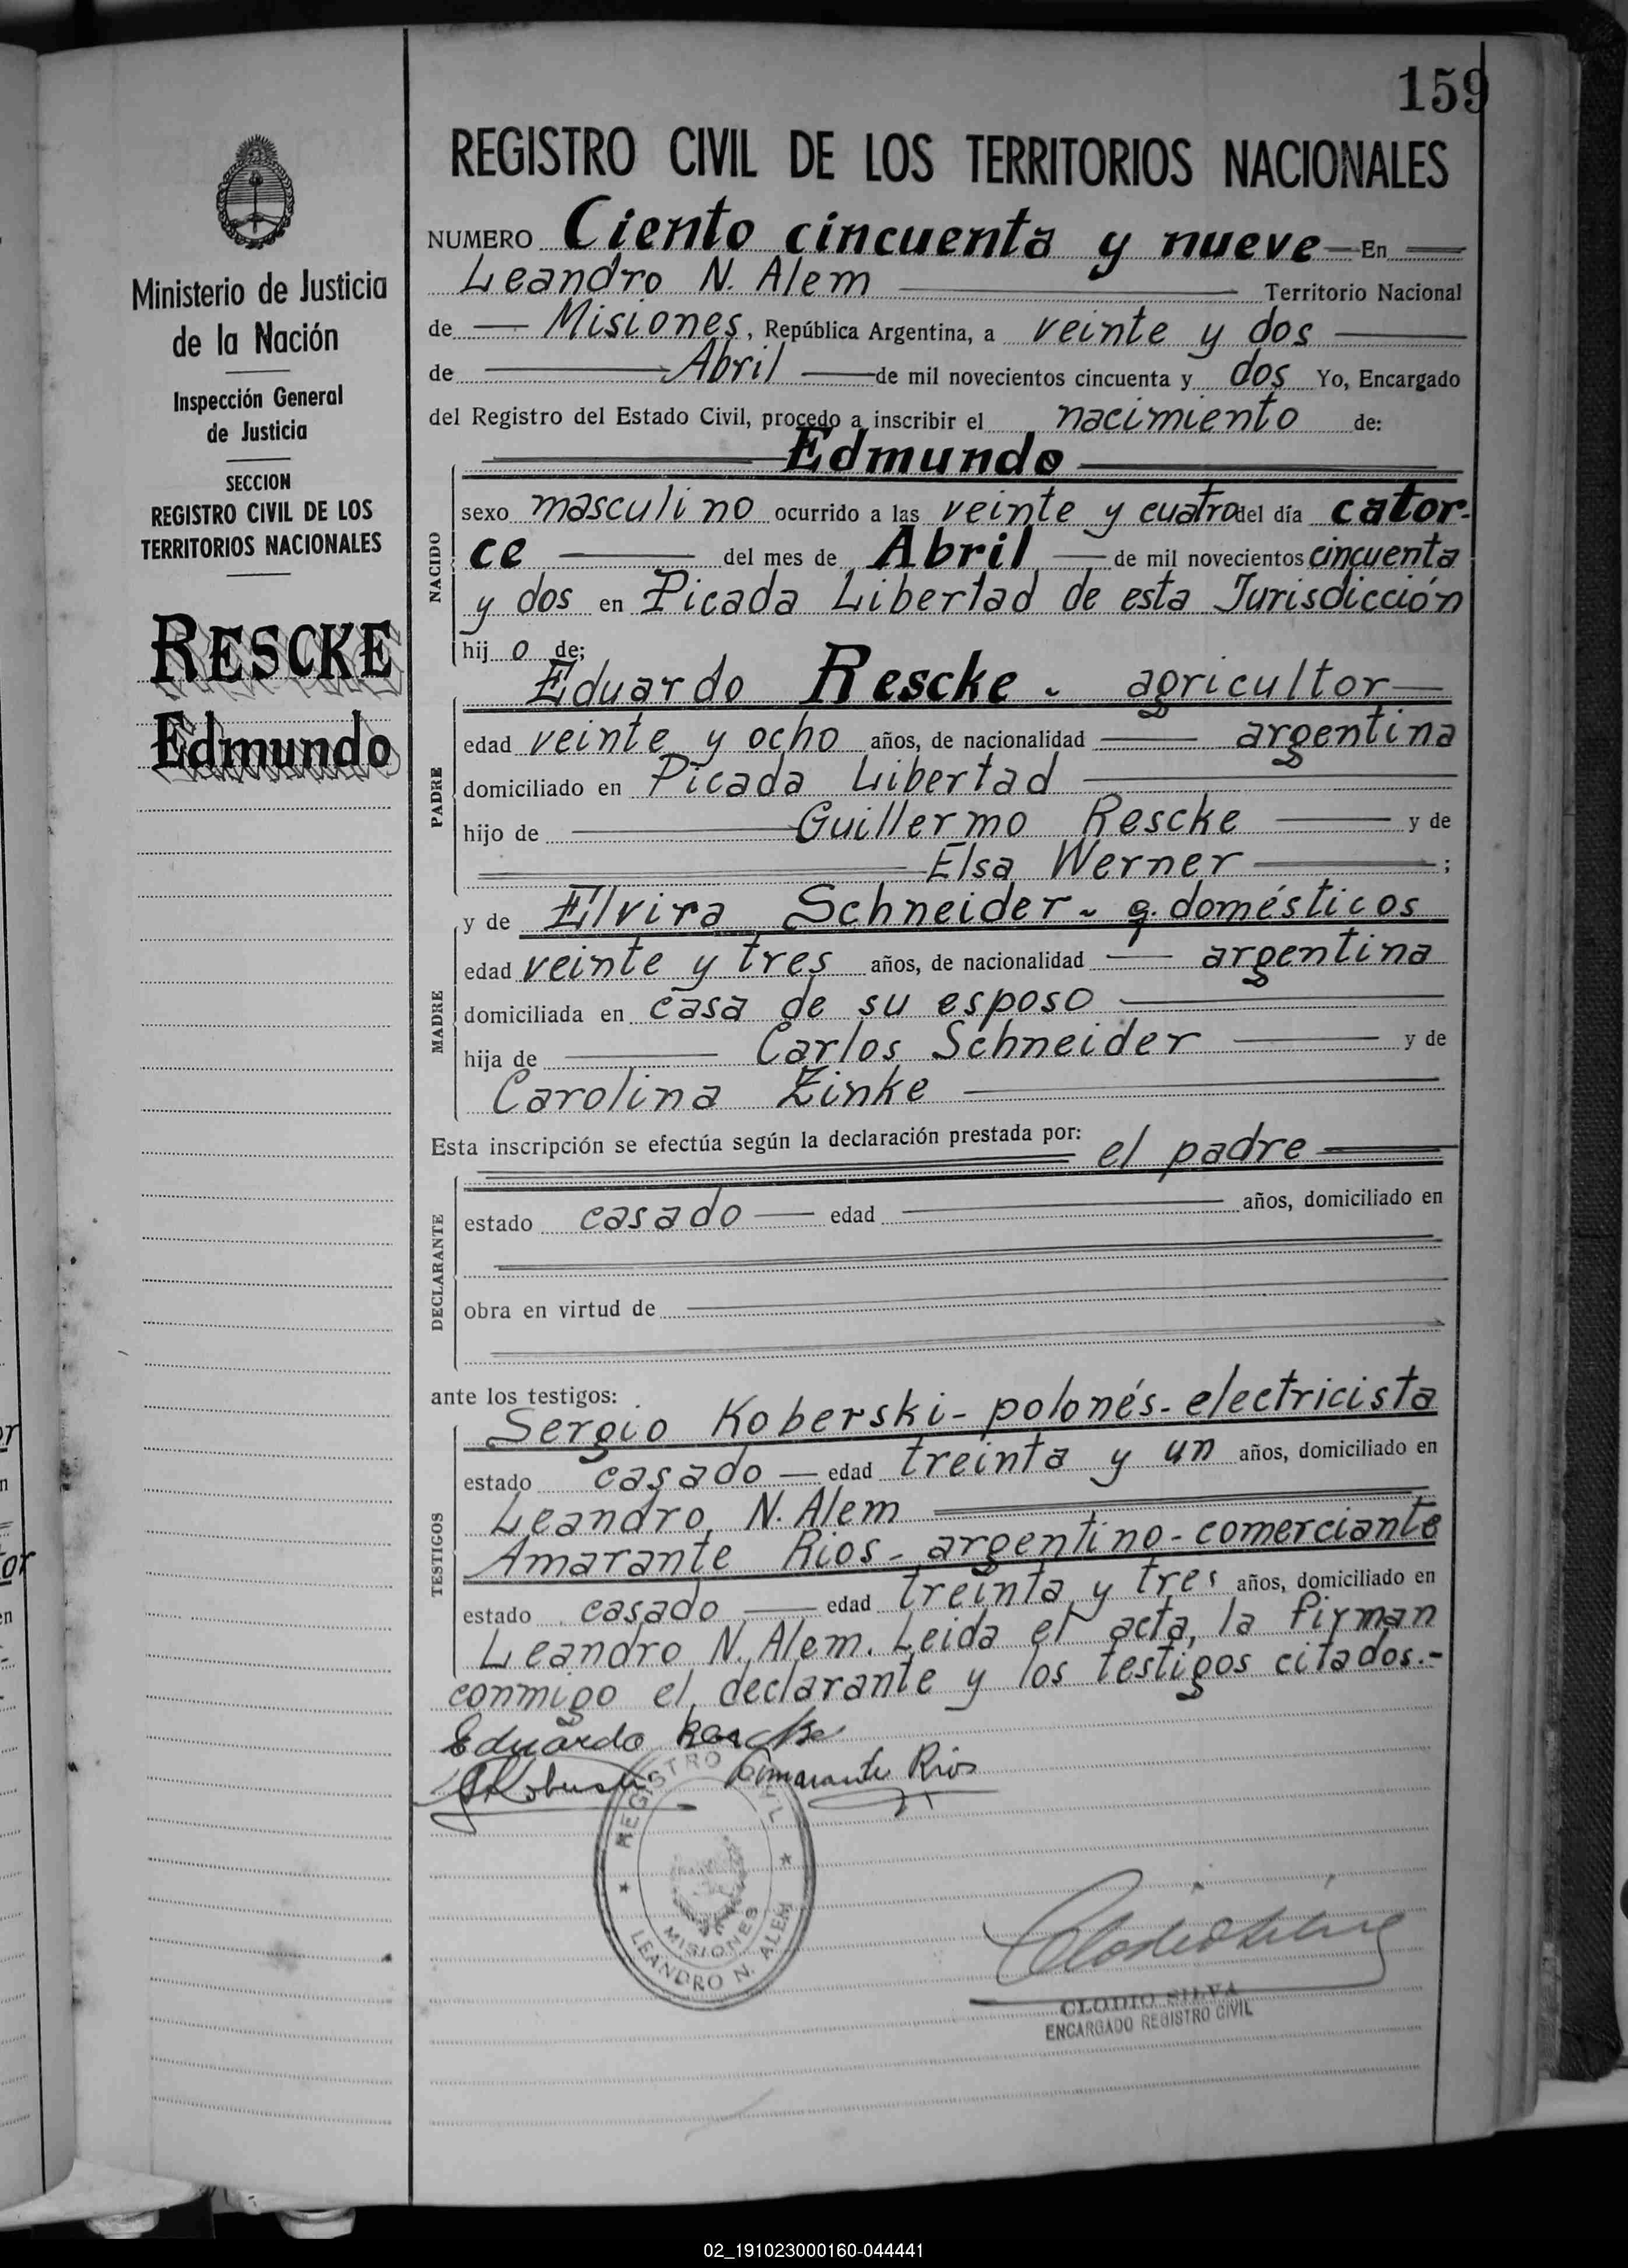 159
REGISTRO CIVIL DE LOS TERRITORIOS NACIONALES
Ministerio de Justicia
de la Nación
Inspección General
de Justicia
SECCION
REGISTRO CIVIL DE LOS
TERRITORIOS NACIONALES
RESCKE
Edmundo
NUMERO Ciento cincuenta y nueve En
Leandro N. Alem Territorio Nacional
de Misiones, República Argentina, a veinte y dos
de Abril de mil novecientos cincuenta y dos Yo, Encargado
del Registro del Estado Civil, procedo a inscribir el nacimiento de:
Edmundo
NACIDO
sexo masculino ocurrido a las veinte y cuatro del día cator-
ce del mes de Abril de mil novecientos cincuenta
y dos en Picada Libertad de esta Jurisdicción
hij o de;
PADRE
Eduardo Rescke - agricultor
edad veinte y ocho años, de nacionalidad argentina
domiciliado en Picada Libertad
hijo de Guillermo Rescke y de
Elsa Werner ;
MADRE
y de Elvira Schneider - q. domésticos
edad veinte y tres años, de nacionalidad argentina
domiciliada en casa de su esposo
hija de Carlos Schneider y de
Carolina Zinke
Esta inscripción se efectúa según la declaración prestada por: el padre
DECLARANTE
estado casado edad años, domiciliado en
obra en virtud de
ante los testigos:
TESTIGOS
Sergio Koberski - polonés - electricista
estado casado edad treinta y un años, domiciliado en
Leandro N. Alem
Amarante Rios - argentino - comerciante
estado casado edad treinta y tres años, domiciliado en
Leandro N. Alem. Leida el acta, la firman
conmigo el declarante y los testigos citados.-
Eduardo Rescke
Amarante Rios
REGISTRO CIVIL
MISIONES
LEANDRO N. ALEM
CLODIO SILVA
ENCARGADO REGISTRO CIVIL
02_191023000160-044441